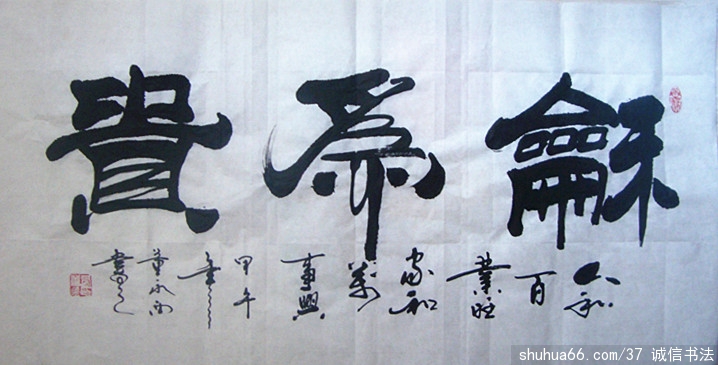 龢為貴
人和
百
業旺
家和
萬
事興
甲午
年
董永
書之
shuhua66.com/37 诚信书法